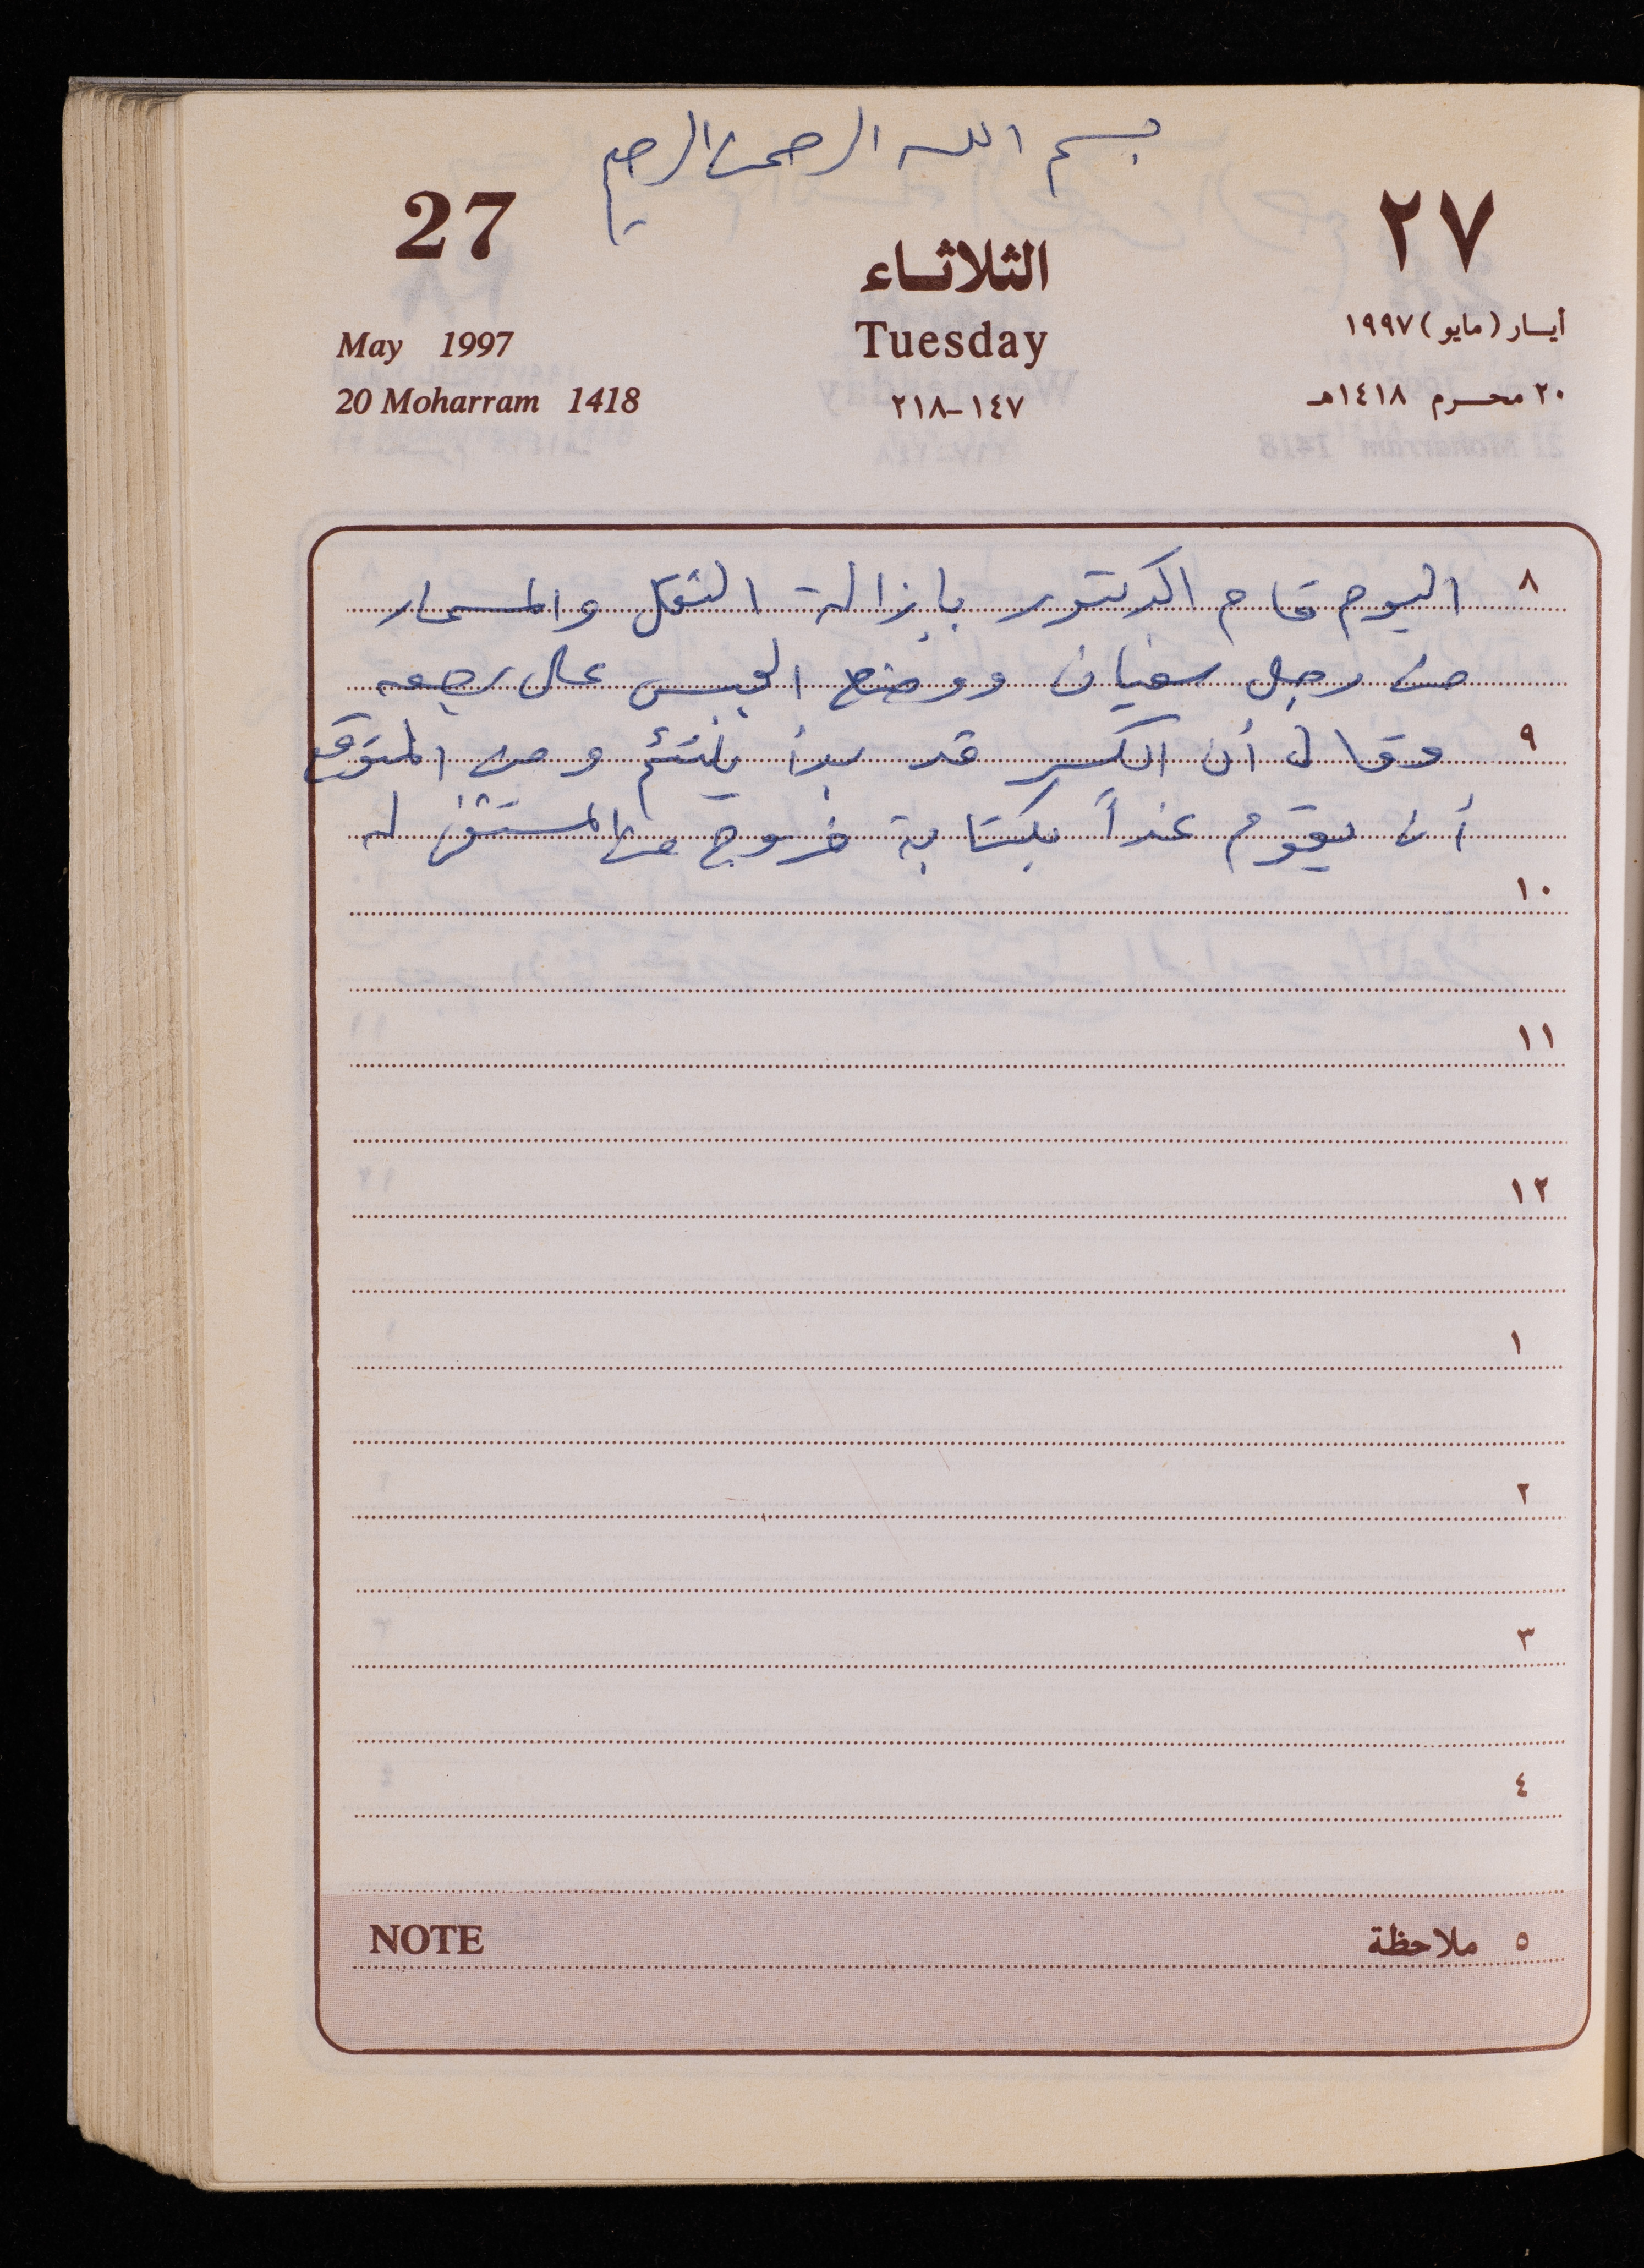 بسم الله الرحمن الرحيم
27
٢٧
الثلاثاء
May 1997
Tuesday
أيار (مايو) ١٩٩٧
20 Moharram 1418
١٤٧-٢١٨
٢٠ محرم ١٤١٨هـ
٨ اليوم قام الدكتور بإزالة الثقل والمسمار
من رجل سفيان ووضع الجبس على رجله
٩ وقال أن الكسر قد بدأ يلتئم ومن المتوقع
أن يقوم غداً بكتابة خروج من المستشفى له
١٠
١١
١٢
١
٢
٣
٤
٥ ملاحظة
NOTE